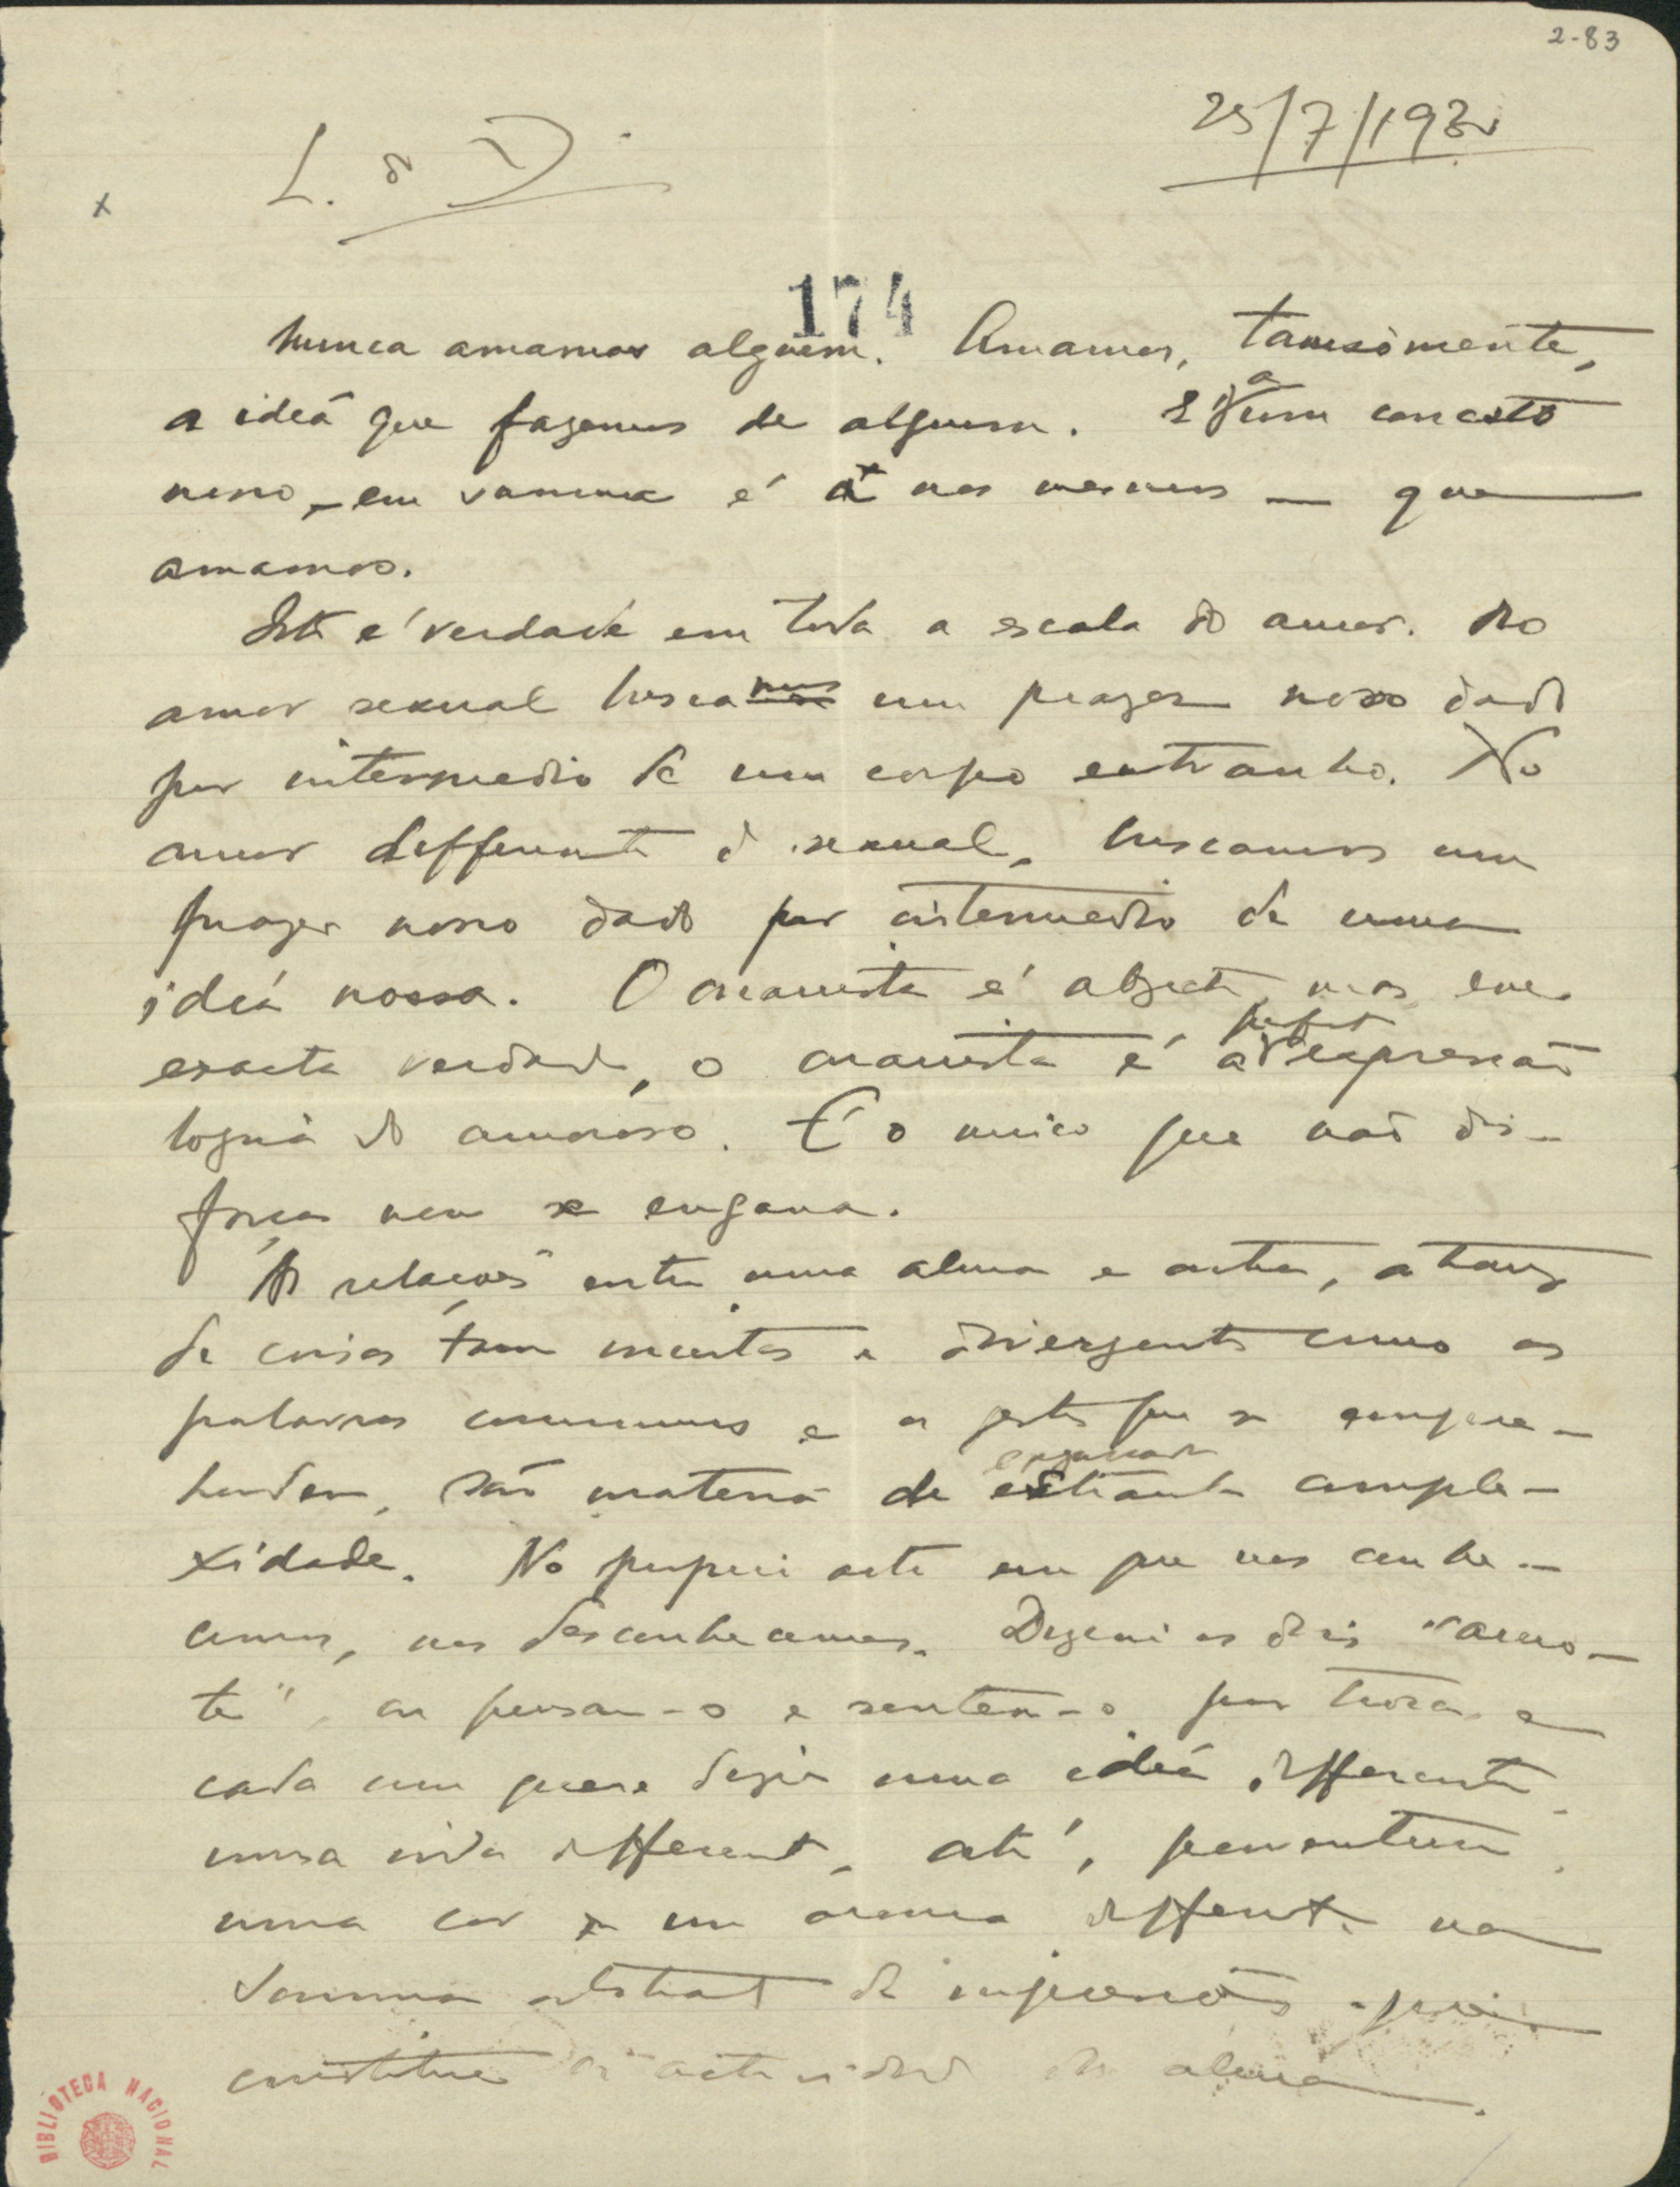 2-83
25/7/1930
L. do D.
x
174
Nunca amamos alguem. Amamos, tamsòmente,
a idéa que fazemos de alguem. É a um conceito
nosso, - em summa é a nós mesmos — que
amamos.
Isto é verdade em toda a escala do amor. No
amor sexual buscamos um prazer nosso dado
por intermedio de um corpo extranho. No
amor differente do sexual, buscamos um
prazer nosso dado por intermedio de uma
idéa nossa. O onanista é abjecto, mas, em
exacta verdade, o onanista é a perfeita expressão
logica do amoroso. É o unico que não dis-
farça nem se engana.
As relações entre uma alma e outra, atravez
de coisas tam incertas e divergentes como as
palavras communs e os gestos que se empre-
hendem, são materia de extranha comple-
xidade. No proprio acto em que nos conhe-
cemos, nos desconhecemos. Dizem os dois "amo-
te", ou pensam-o e sentem-o por troca, e
cada um quere dizer uma idéa differente,
uma vida differente, até, porventura,
uma cor ou um aroma differente, na
somma abstracta de impressões que
constitue a actividade da alma.
BIBLIOTECA NACIONAL